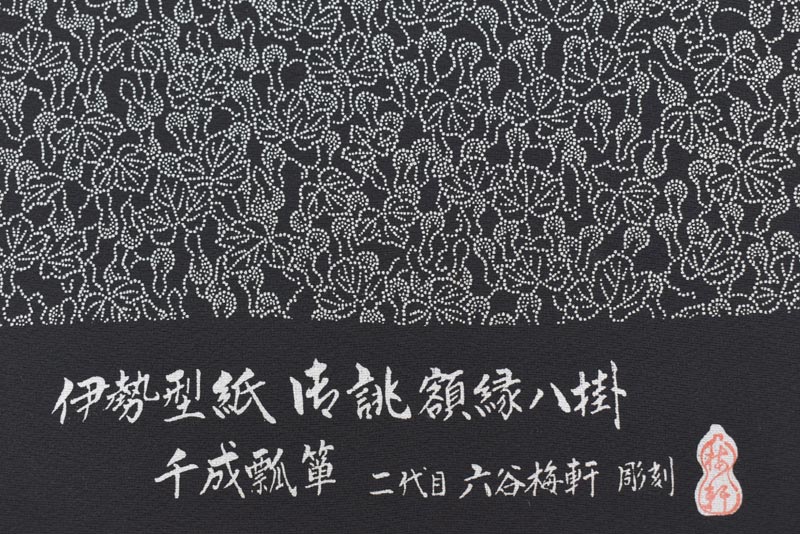 伊勢型紙 御誂 額縁八掛
千成瓢箪 二代目 六谷梅軒 彫刻
梅軒